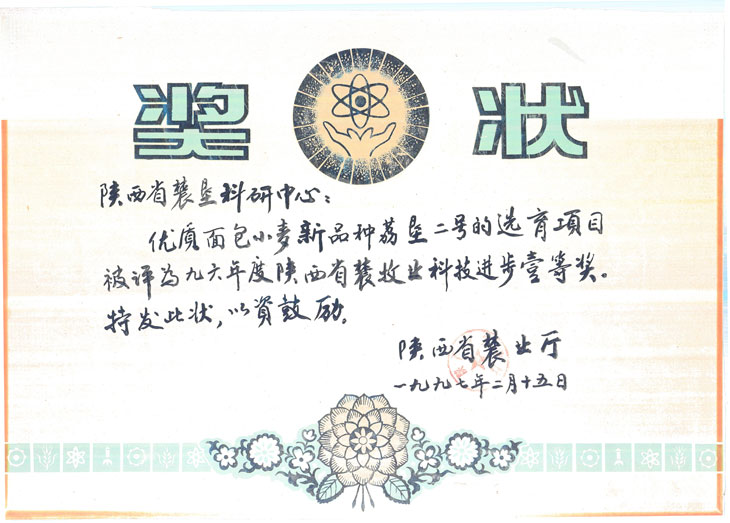 奖 状
陕西省農垦科研中心：
优质面包小麦新品种荔垦二号的选育项目
被评为九六年度陕西省農牧业科技进步壹等奖。
特发此状，以资鼓励。
陕西省農业厅
一九九七年二月十五日